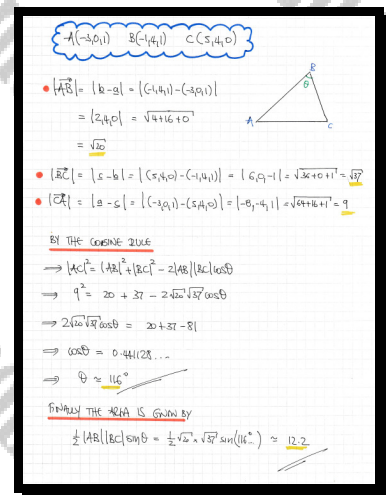 A(-3,0,1) B(-1,4,1) C(5,4,0)
B
θ
A
C
|AB| = |b-a| = |(-1,4,1)-(-3,0,1)|
= |2,4,0| = √4+16+0
= √20
|BC| = |c-b| = |(5,4,0)-(-1,4,1)| = |6,0,-1| = √36+0+1 = √37
|CA| = |a-c| = |(-3,0,1)-(5,4,0)| = |-8,-4,1| = √64+16+1 = 9
BY THE COSINE RULE
⇒ |AC|² = |AB|² + |BC|² - 2|AB||BC|cosθ
⇒ 9² = 20 + 37 - 2√20 √37 cosθ
⇒ 2√20 √37 cosθ = 20+37-81
⇒ cosθ = 0.441128...
⇒ θ ≈ 116°
FINALLY THE AREA IS GIVEN BY
½|AB||BC|sinθ = ½√20 × √37 sin(116°..) ≈ 12.2